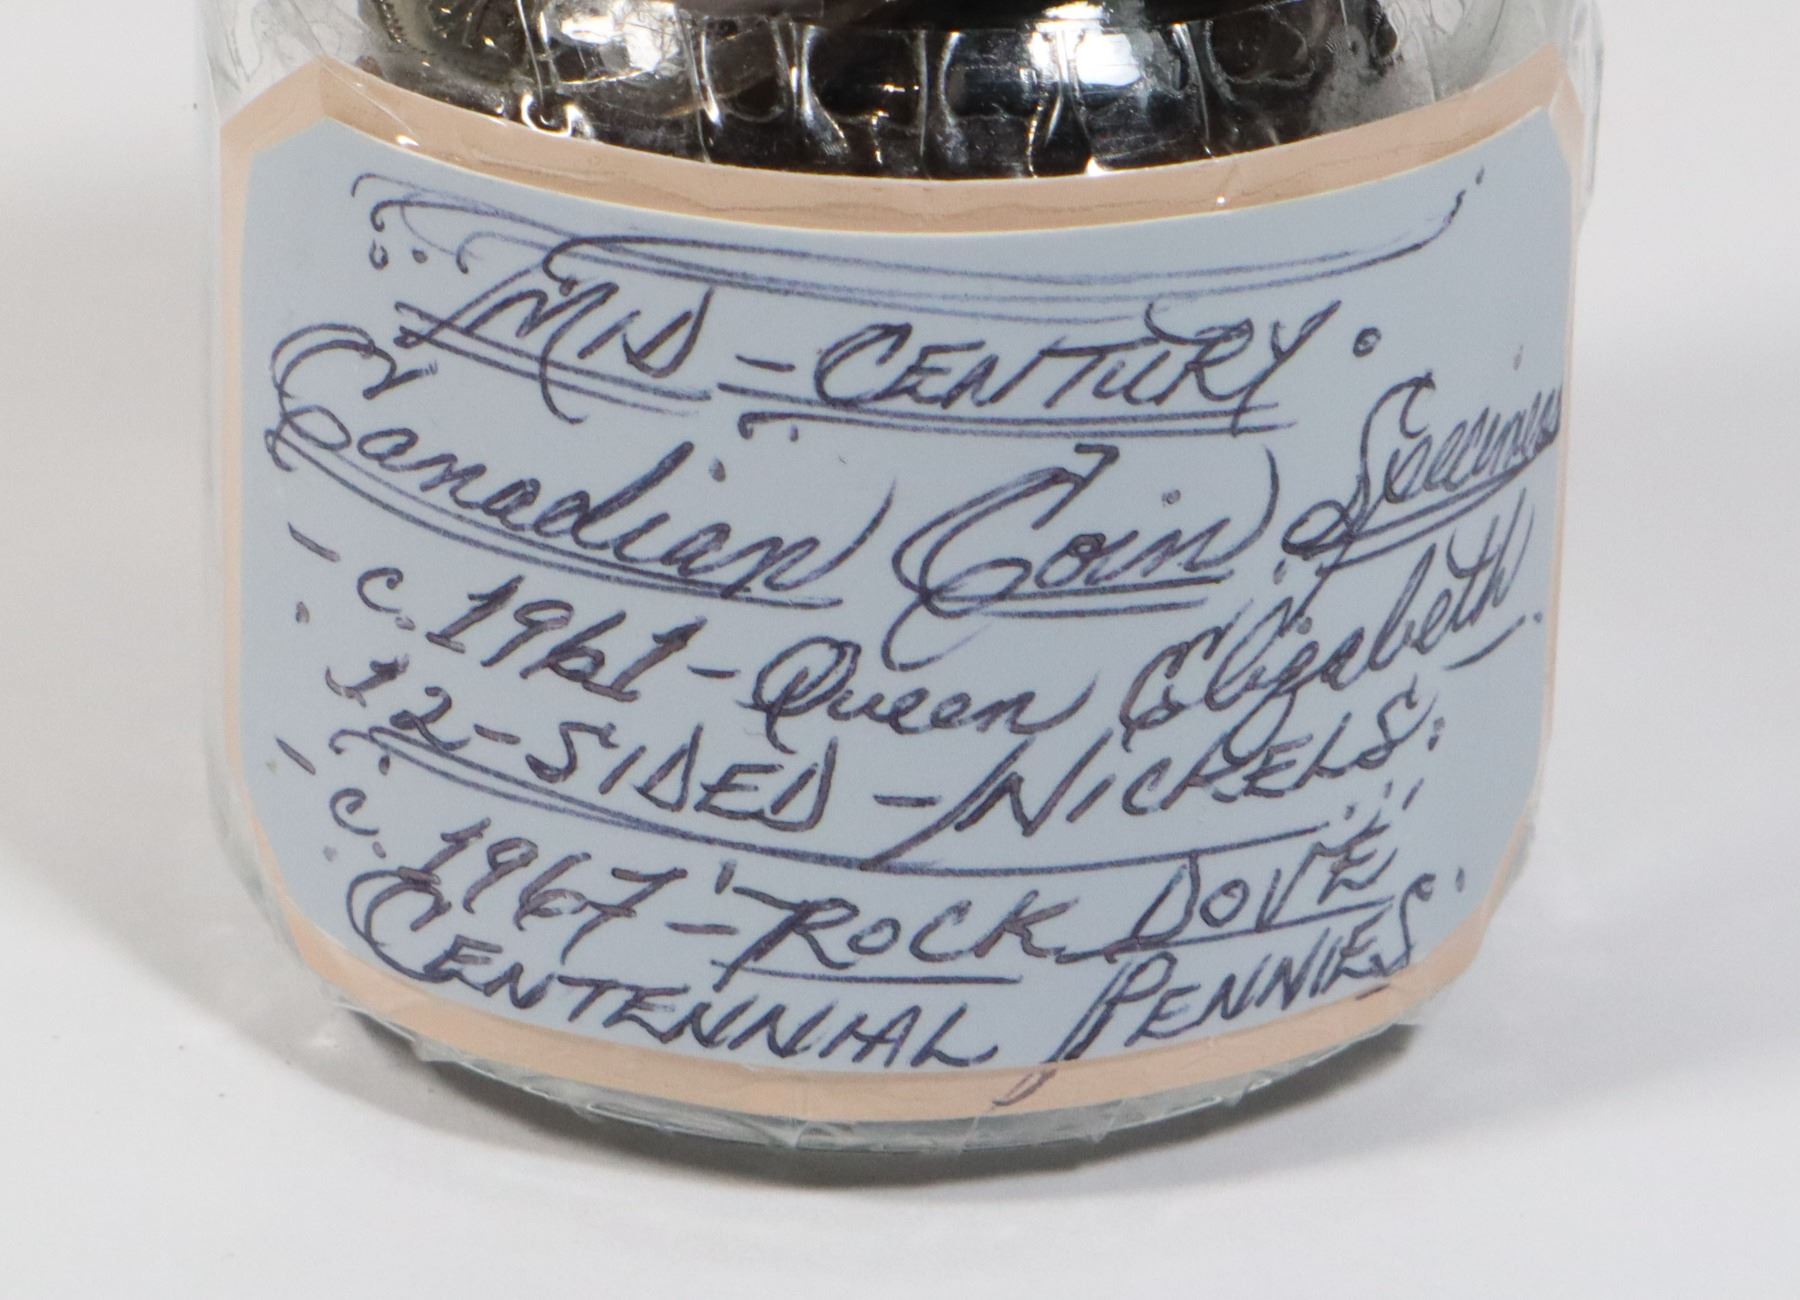 MID-CENTURY.
Canadian Coin Specimens
- c. 1961 - Queen Elizabeth
12-SIDED - NICKELS.
- c. 1967 - 'ROCK DOVE'
CENTENNIAL PENNIES.